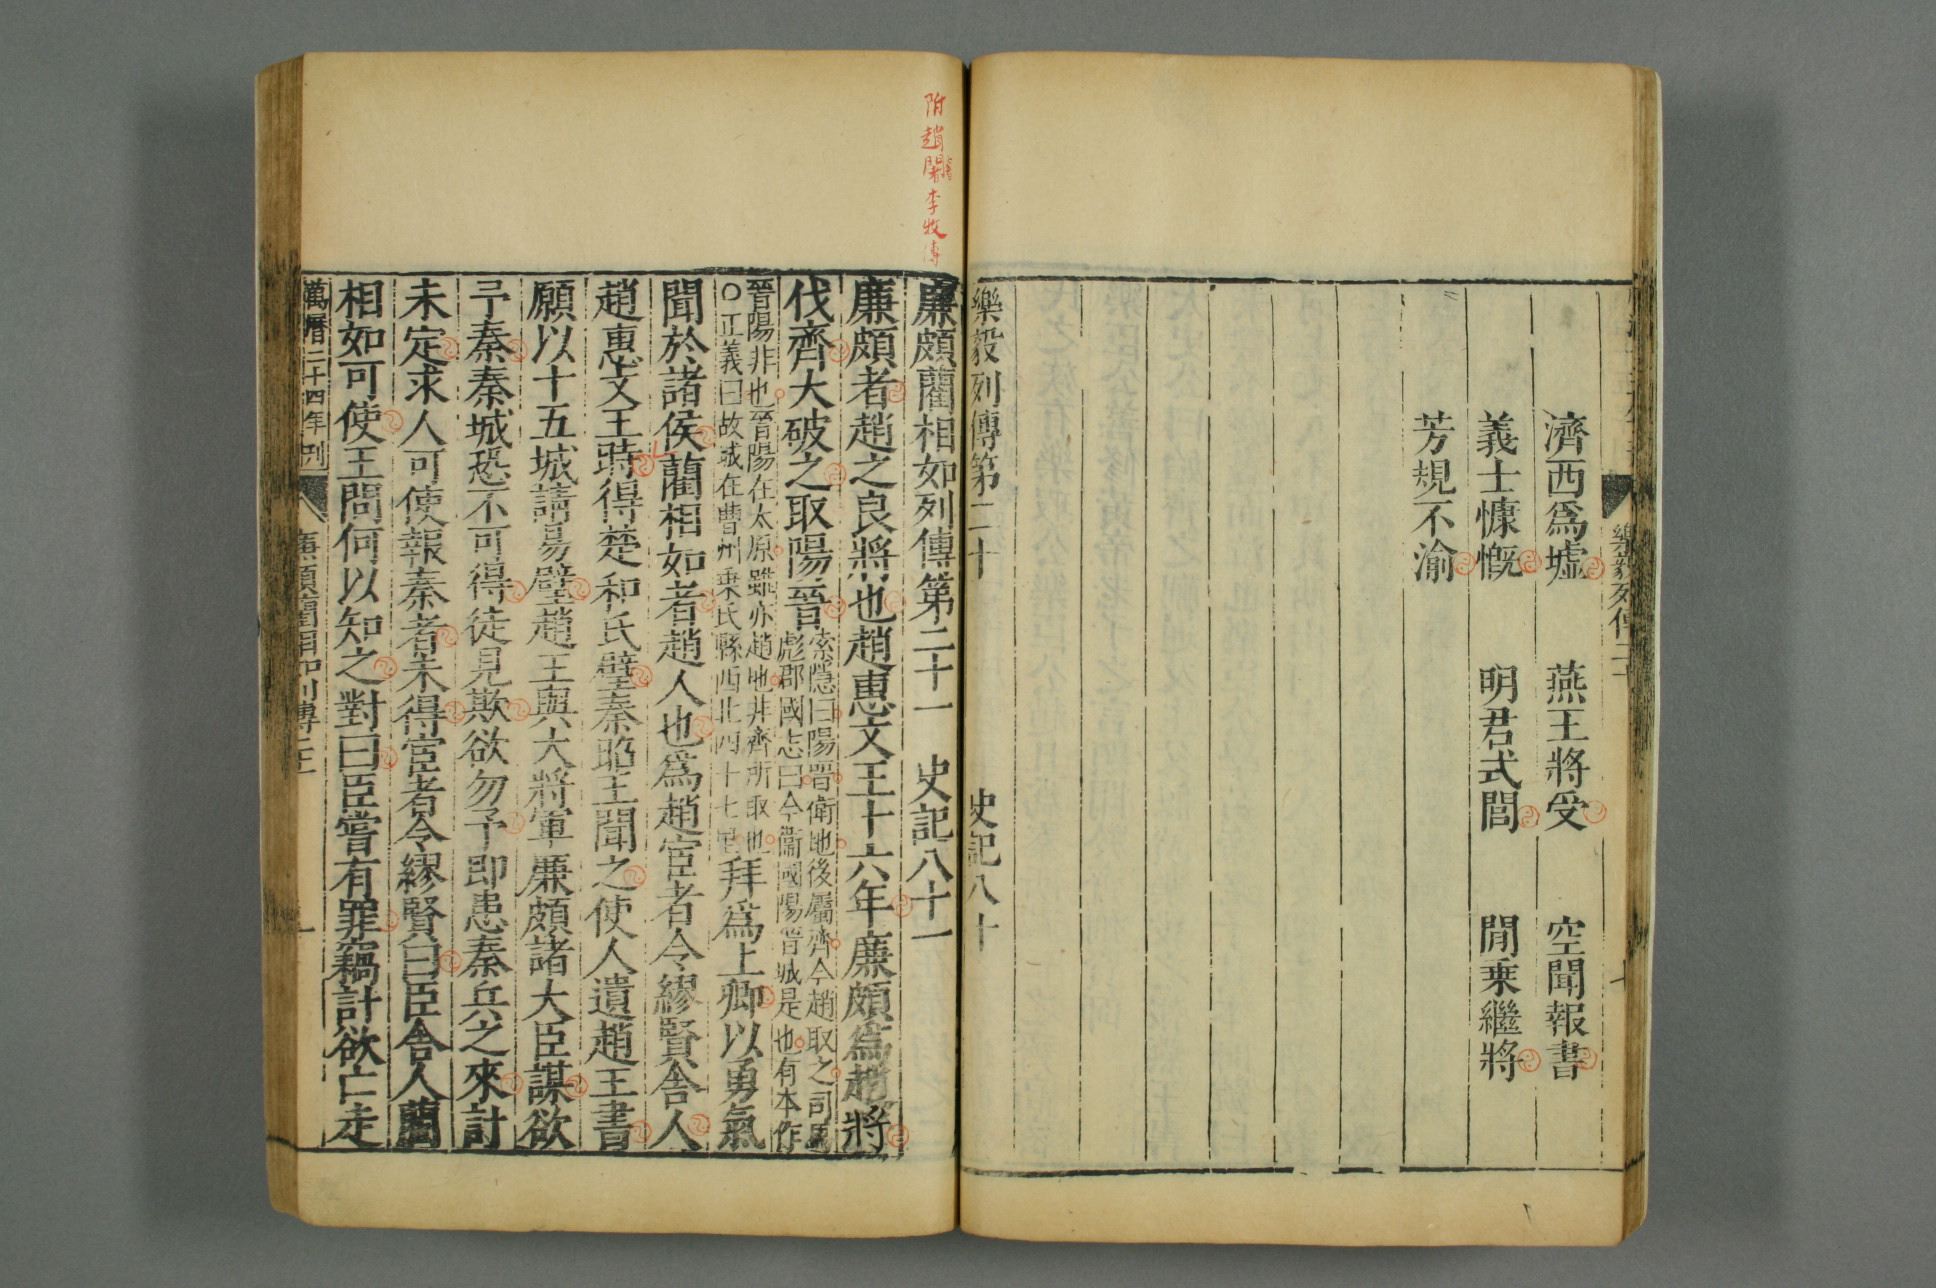 樂毅列傳二十
濟西爲墟　燕王將受　空聞報書
義士慷慨　明君式閭　閒乗繼將
芳規不渝
樂毅列傳第二十　史記八十
附趙奢李牧傳
廉頗藺相如列傳第二十一　史記八十一
廉頗者趙之良將也趙惠文王十六年廉頗爲趙將
伐齊大破之取陽晉
索隱曰陽晉衛地後屬齊今趙取之司馬
彪郡國志曰今衞國陽晉城是也有本作
晉陽非也晉陽在太原雖亦趙地非齊所取也
○正義曰故城在曹州乗氏縣西北四十七里
拜爲上卿以勇氣
聞於諸侯藺相如者趙人也爲趙宦者令繆賢舍人
趙惠文王時得楚和氏璧秦昭王聞之使人遺趙王書
願以十五城請易璧趙王與大將軍廉頗諸大臣謀欲
予秦秦城恐不可得徒見欺欲勿予即患秦兵之來計
未定求人可使報秦者未得宦者令繆賢曰臣舍人藺
相如可使王問何以知之對曰臣嘗有罪竊計欲亡走
萬曆二十四年刋
廉頗藺相如列傳二十一
一